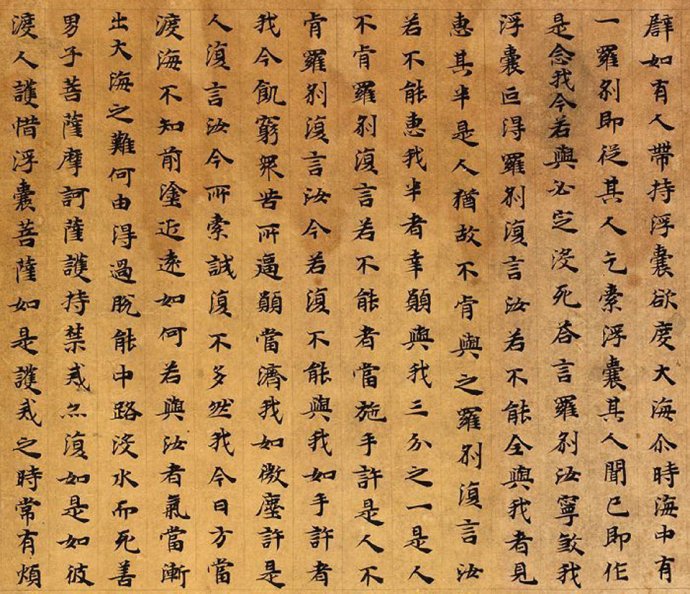 譬如有人帶持浮囊欲度大海尒時海中有
一羅剎即從其人乞索浮囊其人聞已即作
是念我今若與必定沒死答言羅剎汝寧煞我
浮囊叵得羅剎復言汝若不能全與我者見
惠其半是人猶故不肯與之羅剎復言汝
若不能惠我半者幸願與我三分之一是人
不肯羅剎復言若不能者當施手許是人不
肯羅剎復言汝今若復不能與我如手許者
我今飢窮眾苦所逼願當濟我如微塵許是
人復言汝今所索誠復不多然我今日方當
渡海不知前塗近遠如何若與汝者氣當漸
出大海之難何由得過脫能中路沒水而死善
男子菩薩摩訶薩護持禁戒亦復如是如彼
渡人護惜浮囊菩薩如是護戒之時常有煩